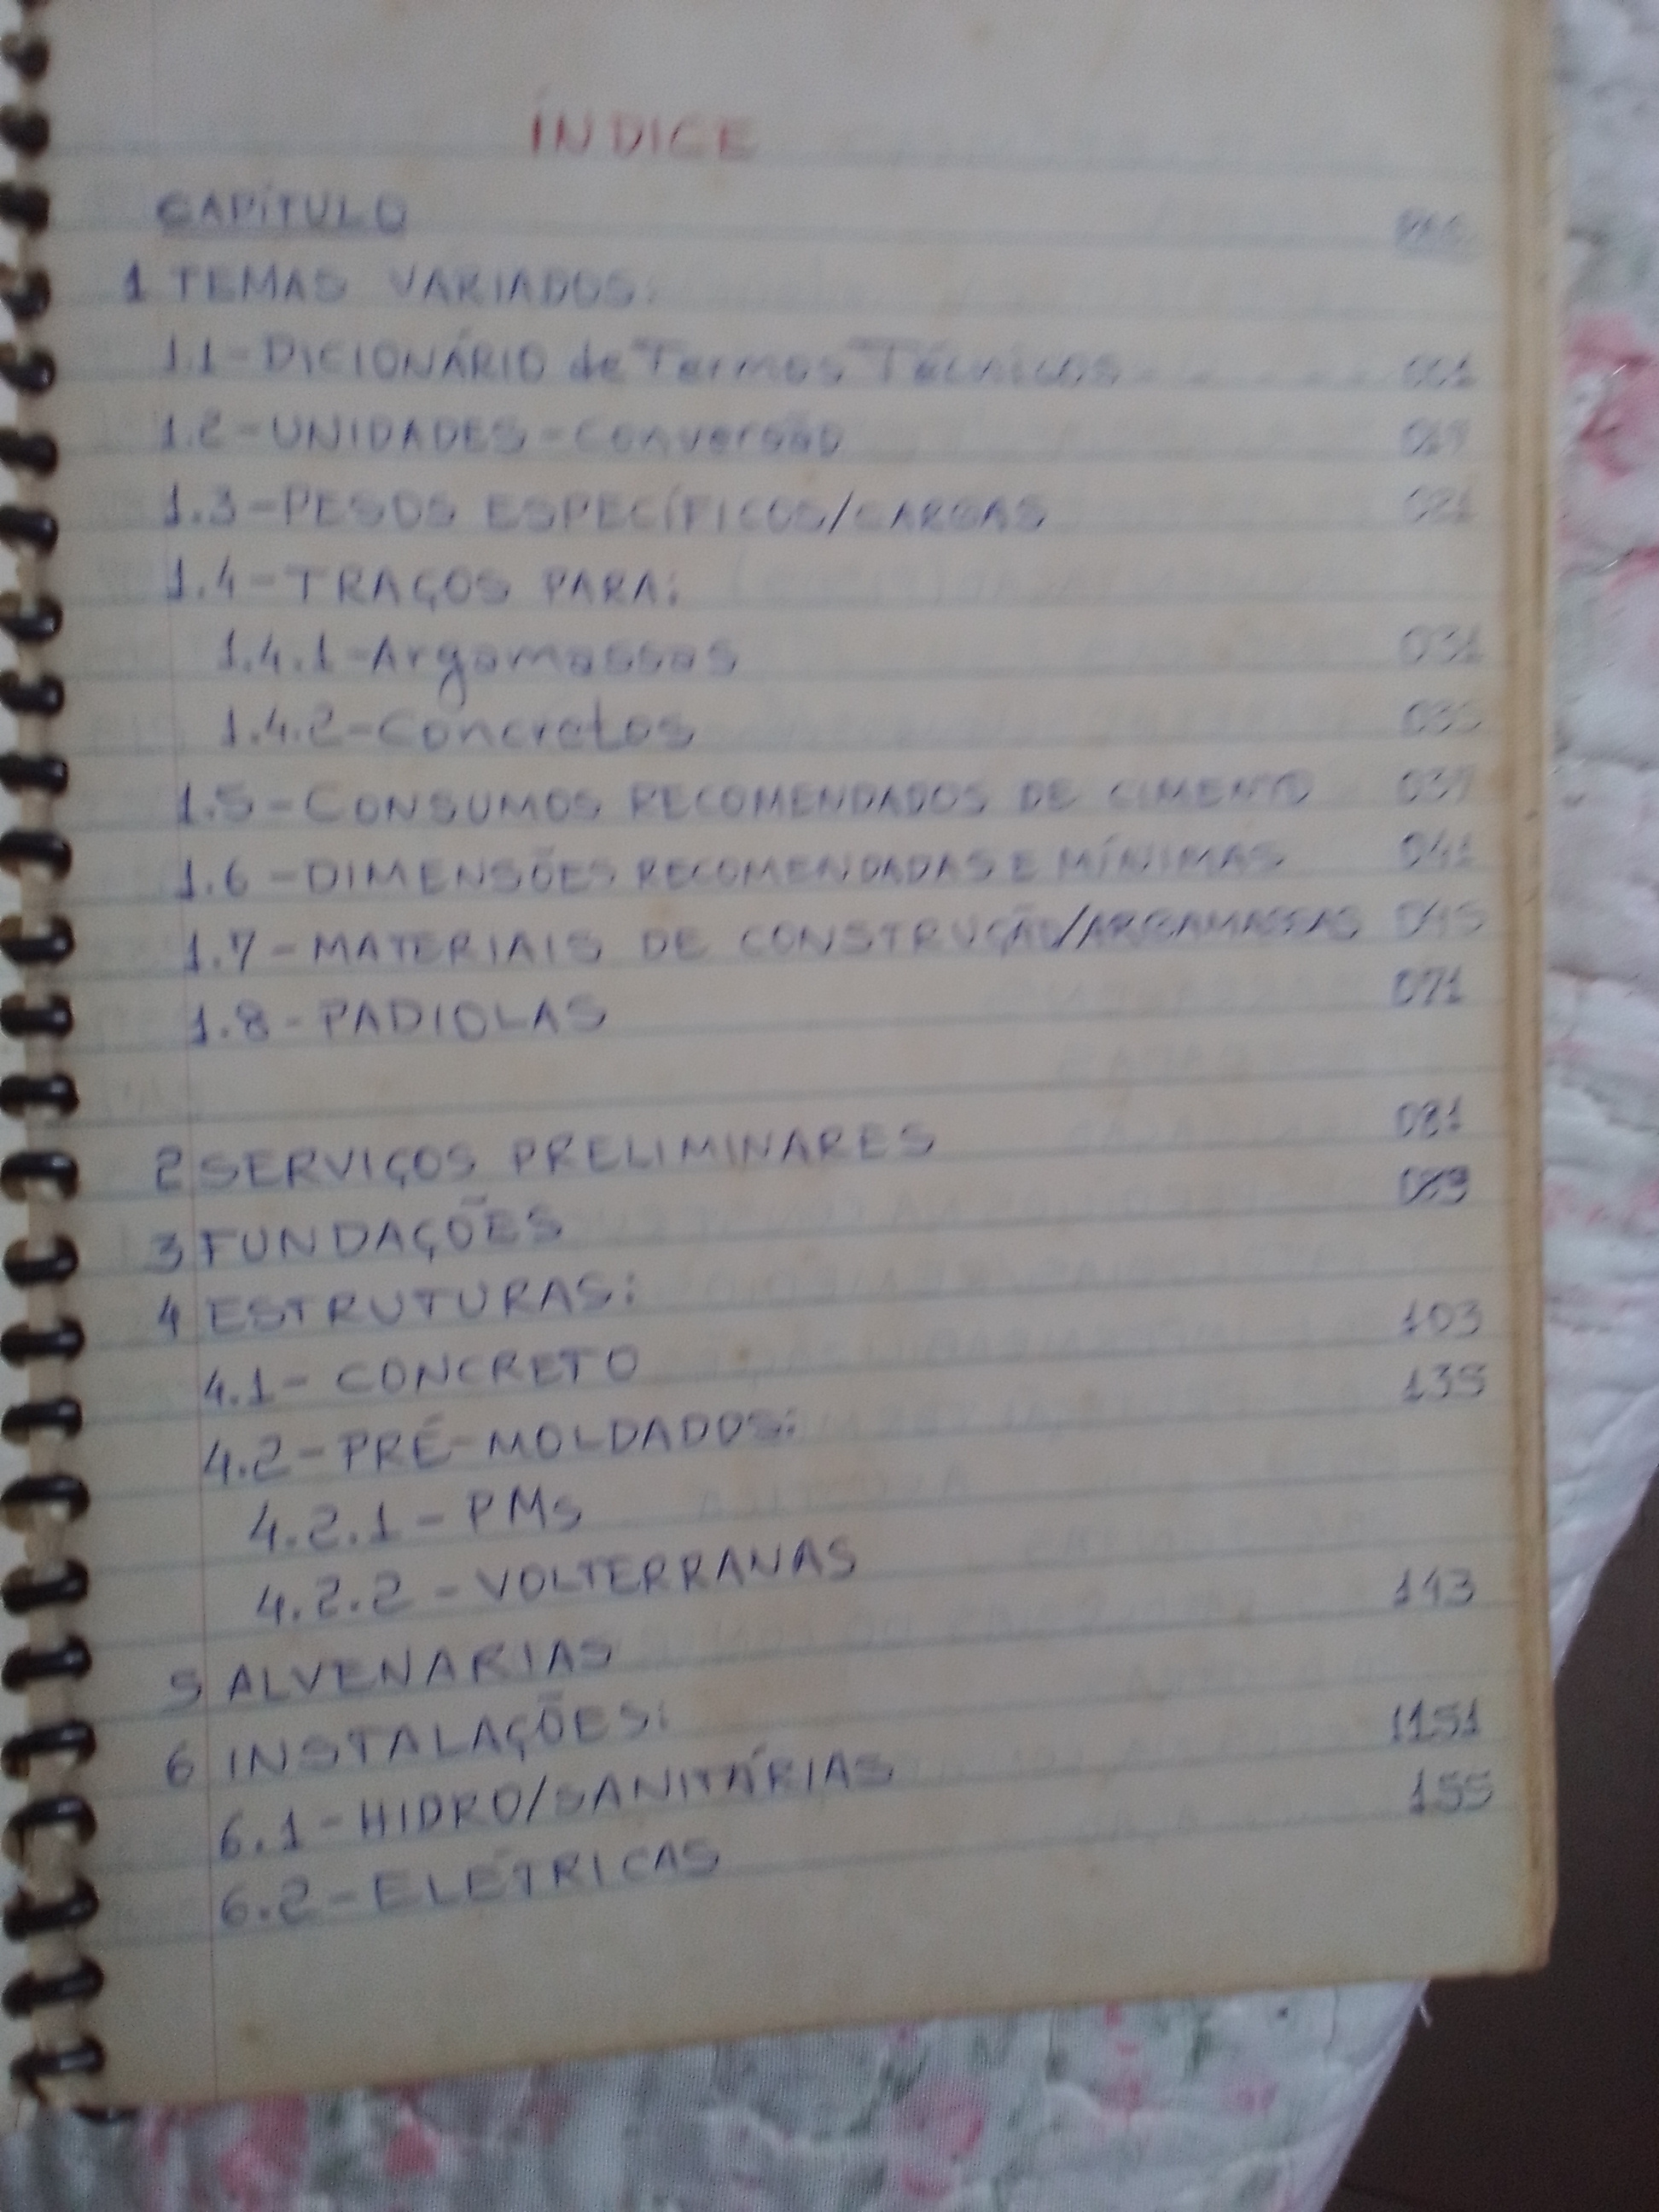 ÍNDICE
CAPÍTULO PAG.
1 TEMAS VARIADOS:
1.1-DICIONÁRIO de "Termos Técnicos" - - - - - 001
1.2-UNIDADES-Conversão
1.3-PESOS ESPECÍFICOS/CARGAS 021
1.4-TRAÇOS PARA:
1.4.1-Argamassas 031
1.4.2-Concretos 035
1.5-CONSUMOS RECOMENDADOS DE CIMENTO 037
1.6-DIMENSÕES RECOMENDADAS E MÍNIMAS 041
1.7-MATERIAIS DE CONSTRUÇÃO/ARGAMASSAS 045
1.8-PADIOLAS 071
2 SERVIÇOS PRELIMINARES 081
3 FUNDAÇÕES 089
4 ESTRUTURAS:
4.1- CONCRETO 103
4.2-PRÉ-MOLDADOS: 135
4.2.1-PMs
4.2.2-VOLTERRANAS
5 ALVENARIAS 143
6 INSTALAÇÕES:
6.1-HIDRO/SANITÁRIAS 1151
6.2-ELÉTRICAS 155